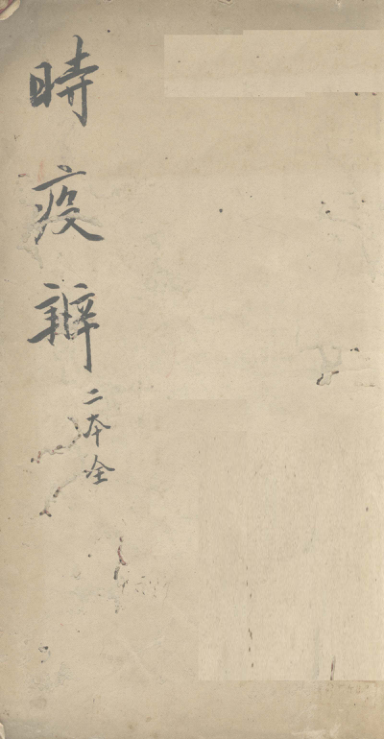 時疫辨
二本全